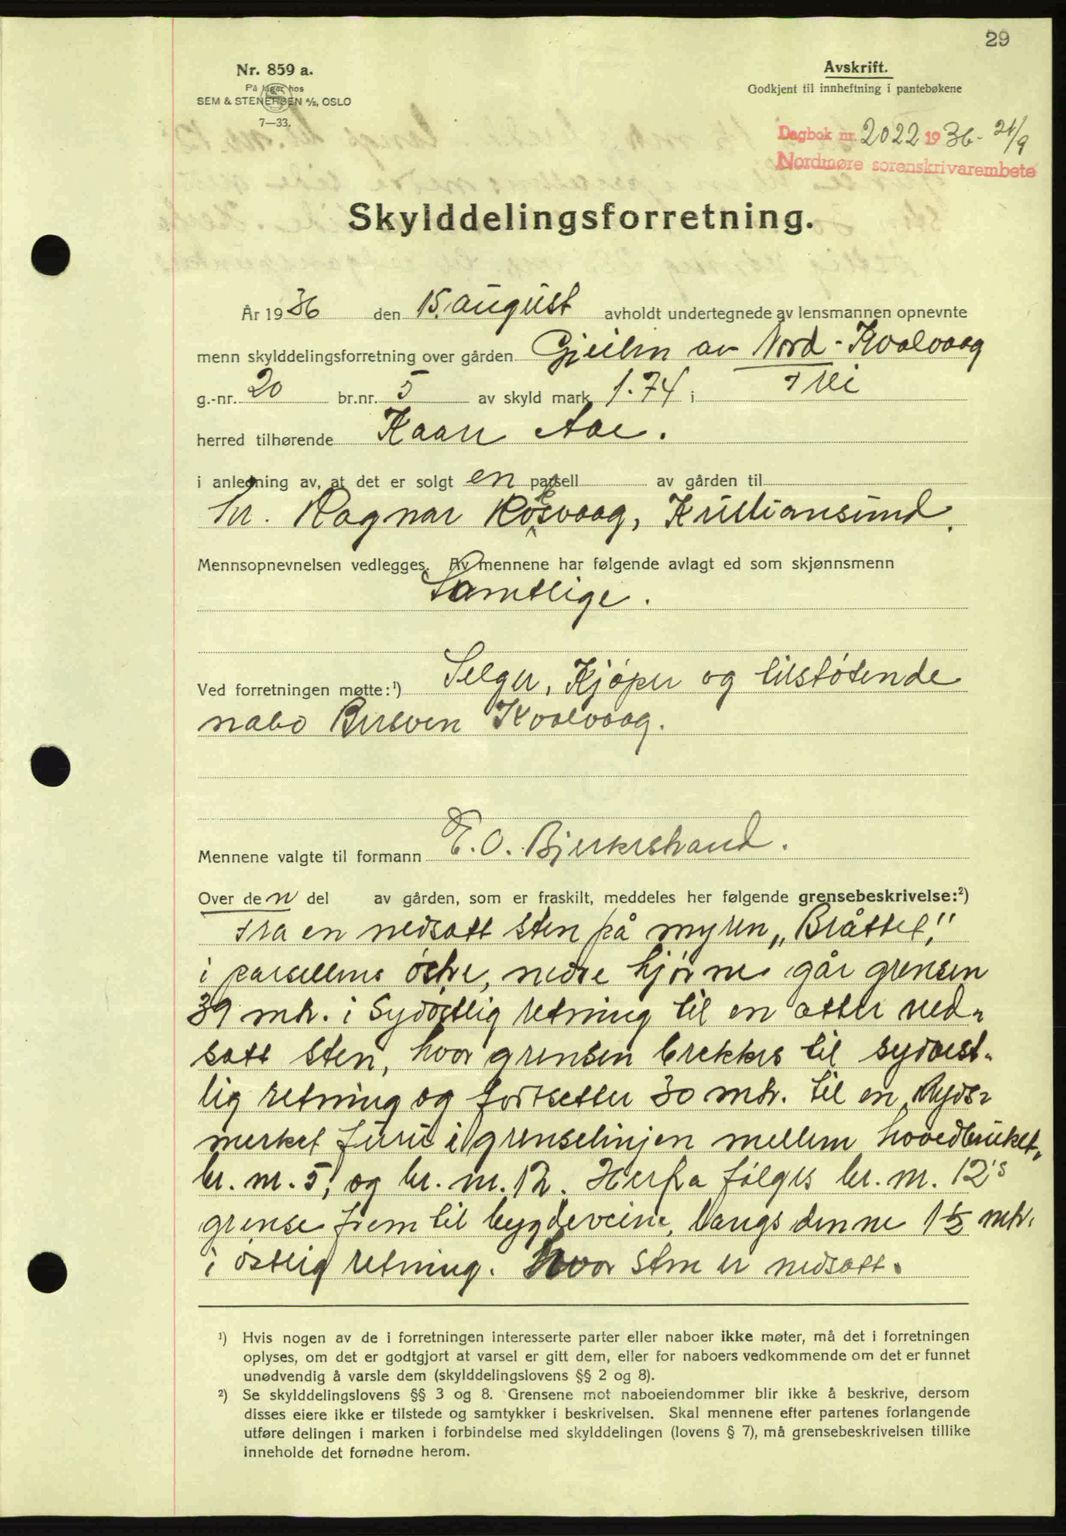 29
Nr. 859 a.
På lager hos
SEM & STENERSEN A/S, OSLO
7—33.
Avskrift.
Godkjent til innheftning i pantebøkene
Dagbok nr. 2022 1936 - 21/9
Nordmøre sorenskrivarembete
Skylddelingsforretning.
År 1936 den 15. august avholdt undertegnede av lensmannen opnevnte
menn skylddelingsforretning over gården Gjeilen av Nord-Kvalvaag
g.-nr. 20 br.nr. 5 av skyld mark 1.74 i Frei
herred tilhørende Kaare Aae.
i anledning av, at det er solgt en parsell av gården til
hr. Ragnar Roksvaag, Kristiansund.
Mennsopnevnelsen vedlegges. Av mennene har følgende avlagt ed som skjønnsmenn
Samtlige.
Ved forretningen møtte:¹) Selger, Kjøper og tilstøtende
nabo Kvalvaag.
Mennene valgte til formann E. O. Bjerkestrand.
Over den del av gården, som er fraskilt, meddeles her følgende grensebeskrivelse:²)
Fra en nedsatt sten på myren „Bråttet,"
i parsellens østre, nedre hjørne går grensen
39 mtr. i Sydøstlig retning til en atter ned-
satt sten, hvor grensen brekkes til sydvest-
lig retning og fortsetter 30 mtr. til en kryds-
merket furu i grenselinjen mellem hovedbruket,
br. nr. 5, og br. nr. 12. Herfra følges br. nr. 12's
grense frem til bygdeveien, langs denne 1½ mtr.
i østlig retning. hvor sten er nedsatt.
¹) Hvis nogen av de i forretningen interesserte parter eller naboer ikke møter, må det i forretningen
oplyses, om det er godtgjort at varsel er gitt dem, eller for naboers vedkommende om det er funnet
unødvendig å varsle dem (skylddelingslovens §§ 2 og 8).
²) Se skylddelingslovens §§ 3 og 8. Grensene mot naboeiendommer blir ikke å beskrive, dersom
disses eiere ikke er tilstede og samtykker i beskrivelsen. Skal mennene efter partenes forlangende
utføre delingen i marken i forbindelse med skylddelingen (lovens § 7), må grensebeskrivelsen tillike
inneholde det fornødne herom.